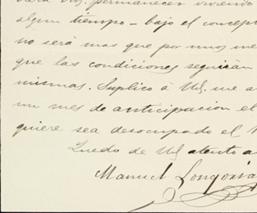 para Ud. permanecer viviendo
algun tiempo - bajo el concept
no será mas que por unos me
que las condiciones seguirán
mismas. Suplico á Ud. me a
un mes de anticipacion el
quiere sea desocupado el
Quedo de Ud. atento a
Manuel Longoria